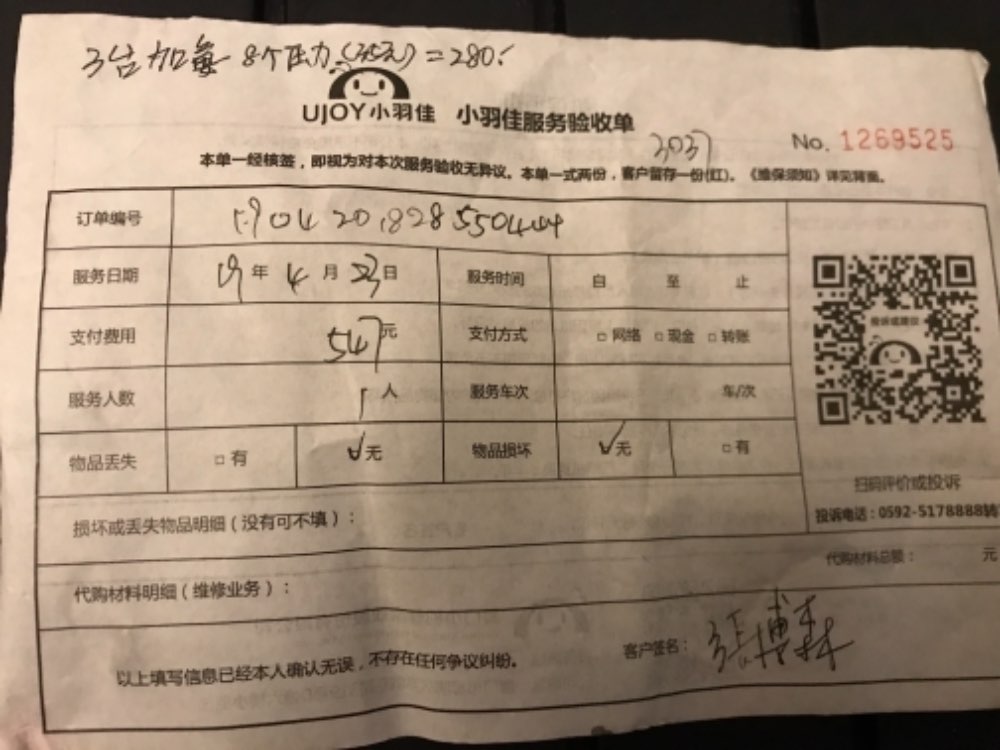 3台加每8个压力(35元)=280.
UJOY小羽佳 小羽佳服务验收单
3037 No. 1269525
本单一经核签，即视为对本次服务验收无异议。本单一式两份，客户留存一份(红)。《维保须知》详见背面。
订单编号
服务日期 19年4月23日 服务时间 自 至 止
支付费用 547元 支付方式 □网络 □现金 □转账
服务人数 1人 服务车次 车/次
物品丢失 □有 ✓无 物品损坏 ✓无 □有
扫码评价或投诉
投诉电话：0592-5178888转
损坏或丢失物品明细（没有可不填）：
代购材料总额： 元
代购材料明细（维修业务）：
以上填写信息已经本人确认无误，不存在任何争议纠纷。
客户签名：张博森